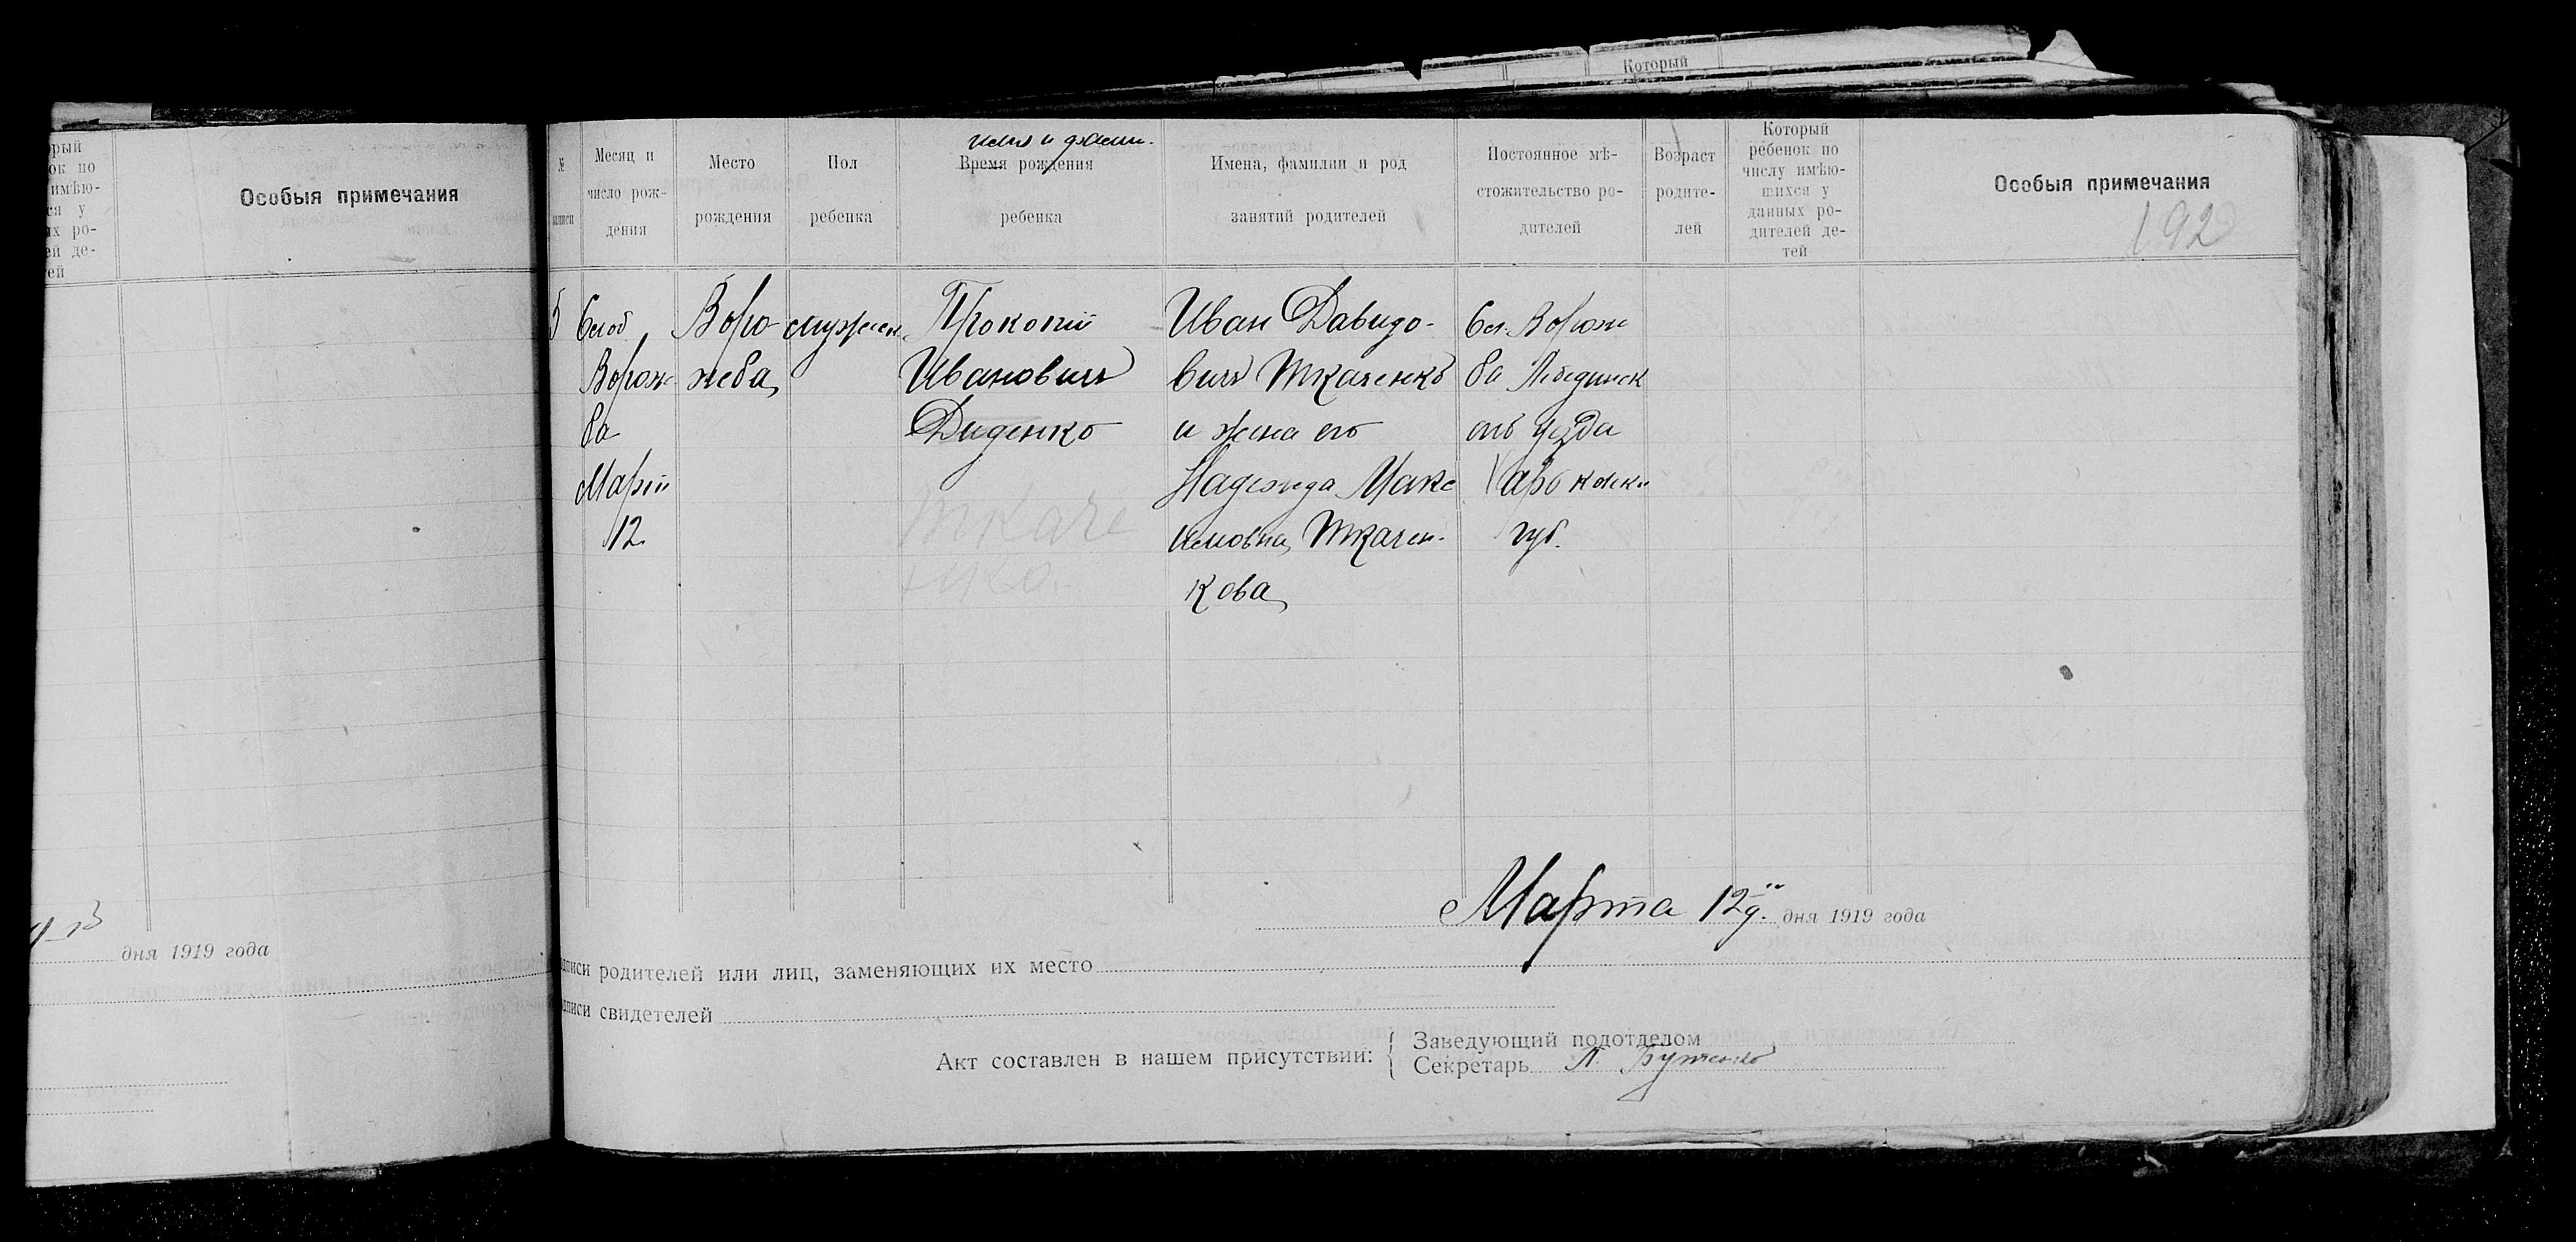 Который
рый
ок по
имѣю-
ся у
их ро-
ей де-
тей
Особыя примечания
дня 1919 года
№
записи
Месяц и
число рож-
дения
Место
рождения
Пол
ребенка
имя и фамил.
Время рождения
ребенка
Имена, фамилии и род
занятий родителей
Постоянное мѣ-
стожительство ро-
дителей
Возраст
родите-
лей
Который
ребенок по
числу имѣю-
шихся у
данных ро-
дителей де-
тей
Особыя примечания
192
5
Слоб
Ворож
ба
Март
12
Воро
жба
мужеск.
Прокопий
Иванович
Диденко
Ткаче
нко.
Иван Давидо-
вич Ткаченко
и жена его
Надежда Макс
имовна Ткачен-
кова
Сл. Ворож
ба Лебединск
ого уезда
Харьковск
губ.
Марта 12 д. дня 1919 года
дписи родителей или лиц, заменяющих их место
дписи свидетелей
Акт составлен в нашем присутствии:
Заведующий подотделом
Секретарь